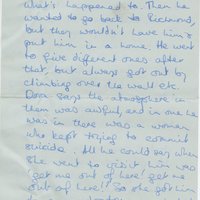 what's happened to. Then he
wanted to go back to Richmond,
but they wouldn't have him &
put him in a home. He went
to five different ones after
that, but always got out by
climbing over the wall etc.
Dora says the atmosphere in
them was awful, and in one he
was in there was a woman
who kept trying to commit
suicide. All he could say when
she went to visit him was
"get me out of here! get me
out of here!" So she got him